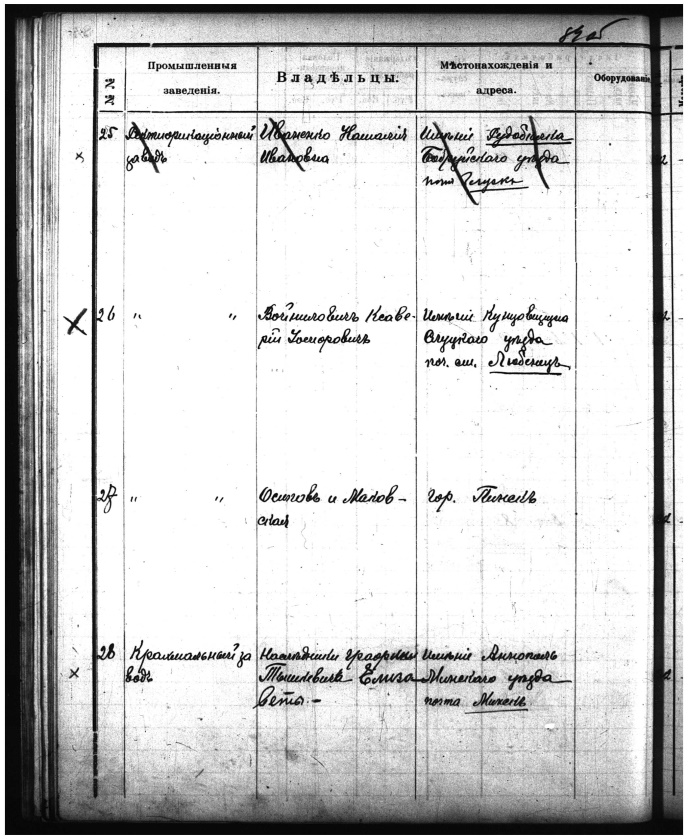 № №
Промышленныя
заведенія.
Владѣльцы.
Мѣстонахожденія и
адреса.
Оборудованіе
25 Ректификаціонный
заводъ
Иваненко Наталія
Ивановна
Имѣніе Рудобѣлка
Бобруйскаго уѣзда
почт Глускъ
26 " "
Войниловичъ Ксаве-
рій
Имѣніе Кунцовщина
Слуцкаго уѣзда
поч. ст.
27 " "
Осиповъ и Маков-
ская
гор. Пинскъ
28 Крахмальный за
водъ
Наслѣдники Графини
Тышкевичъ Елиза
веты.-
Имѣніе Аннополь
Минскаго уѣзда
почта Минскъ